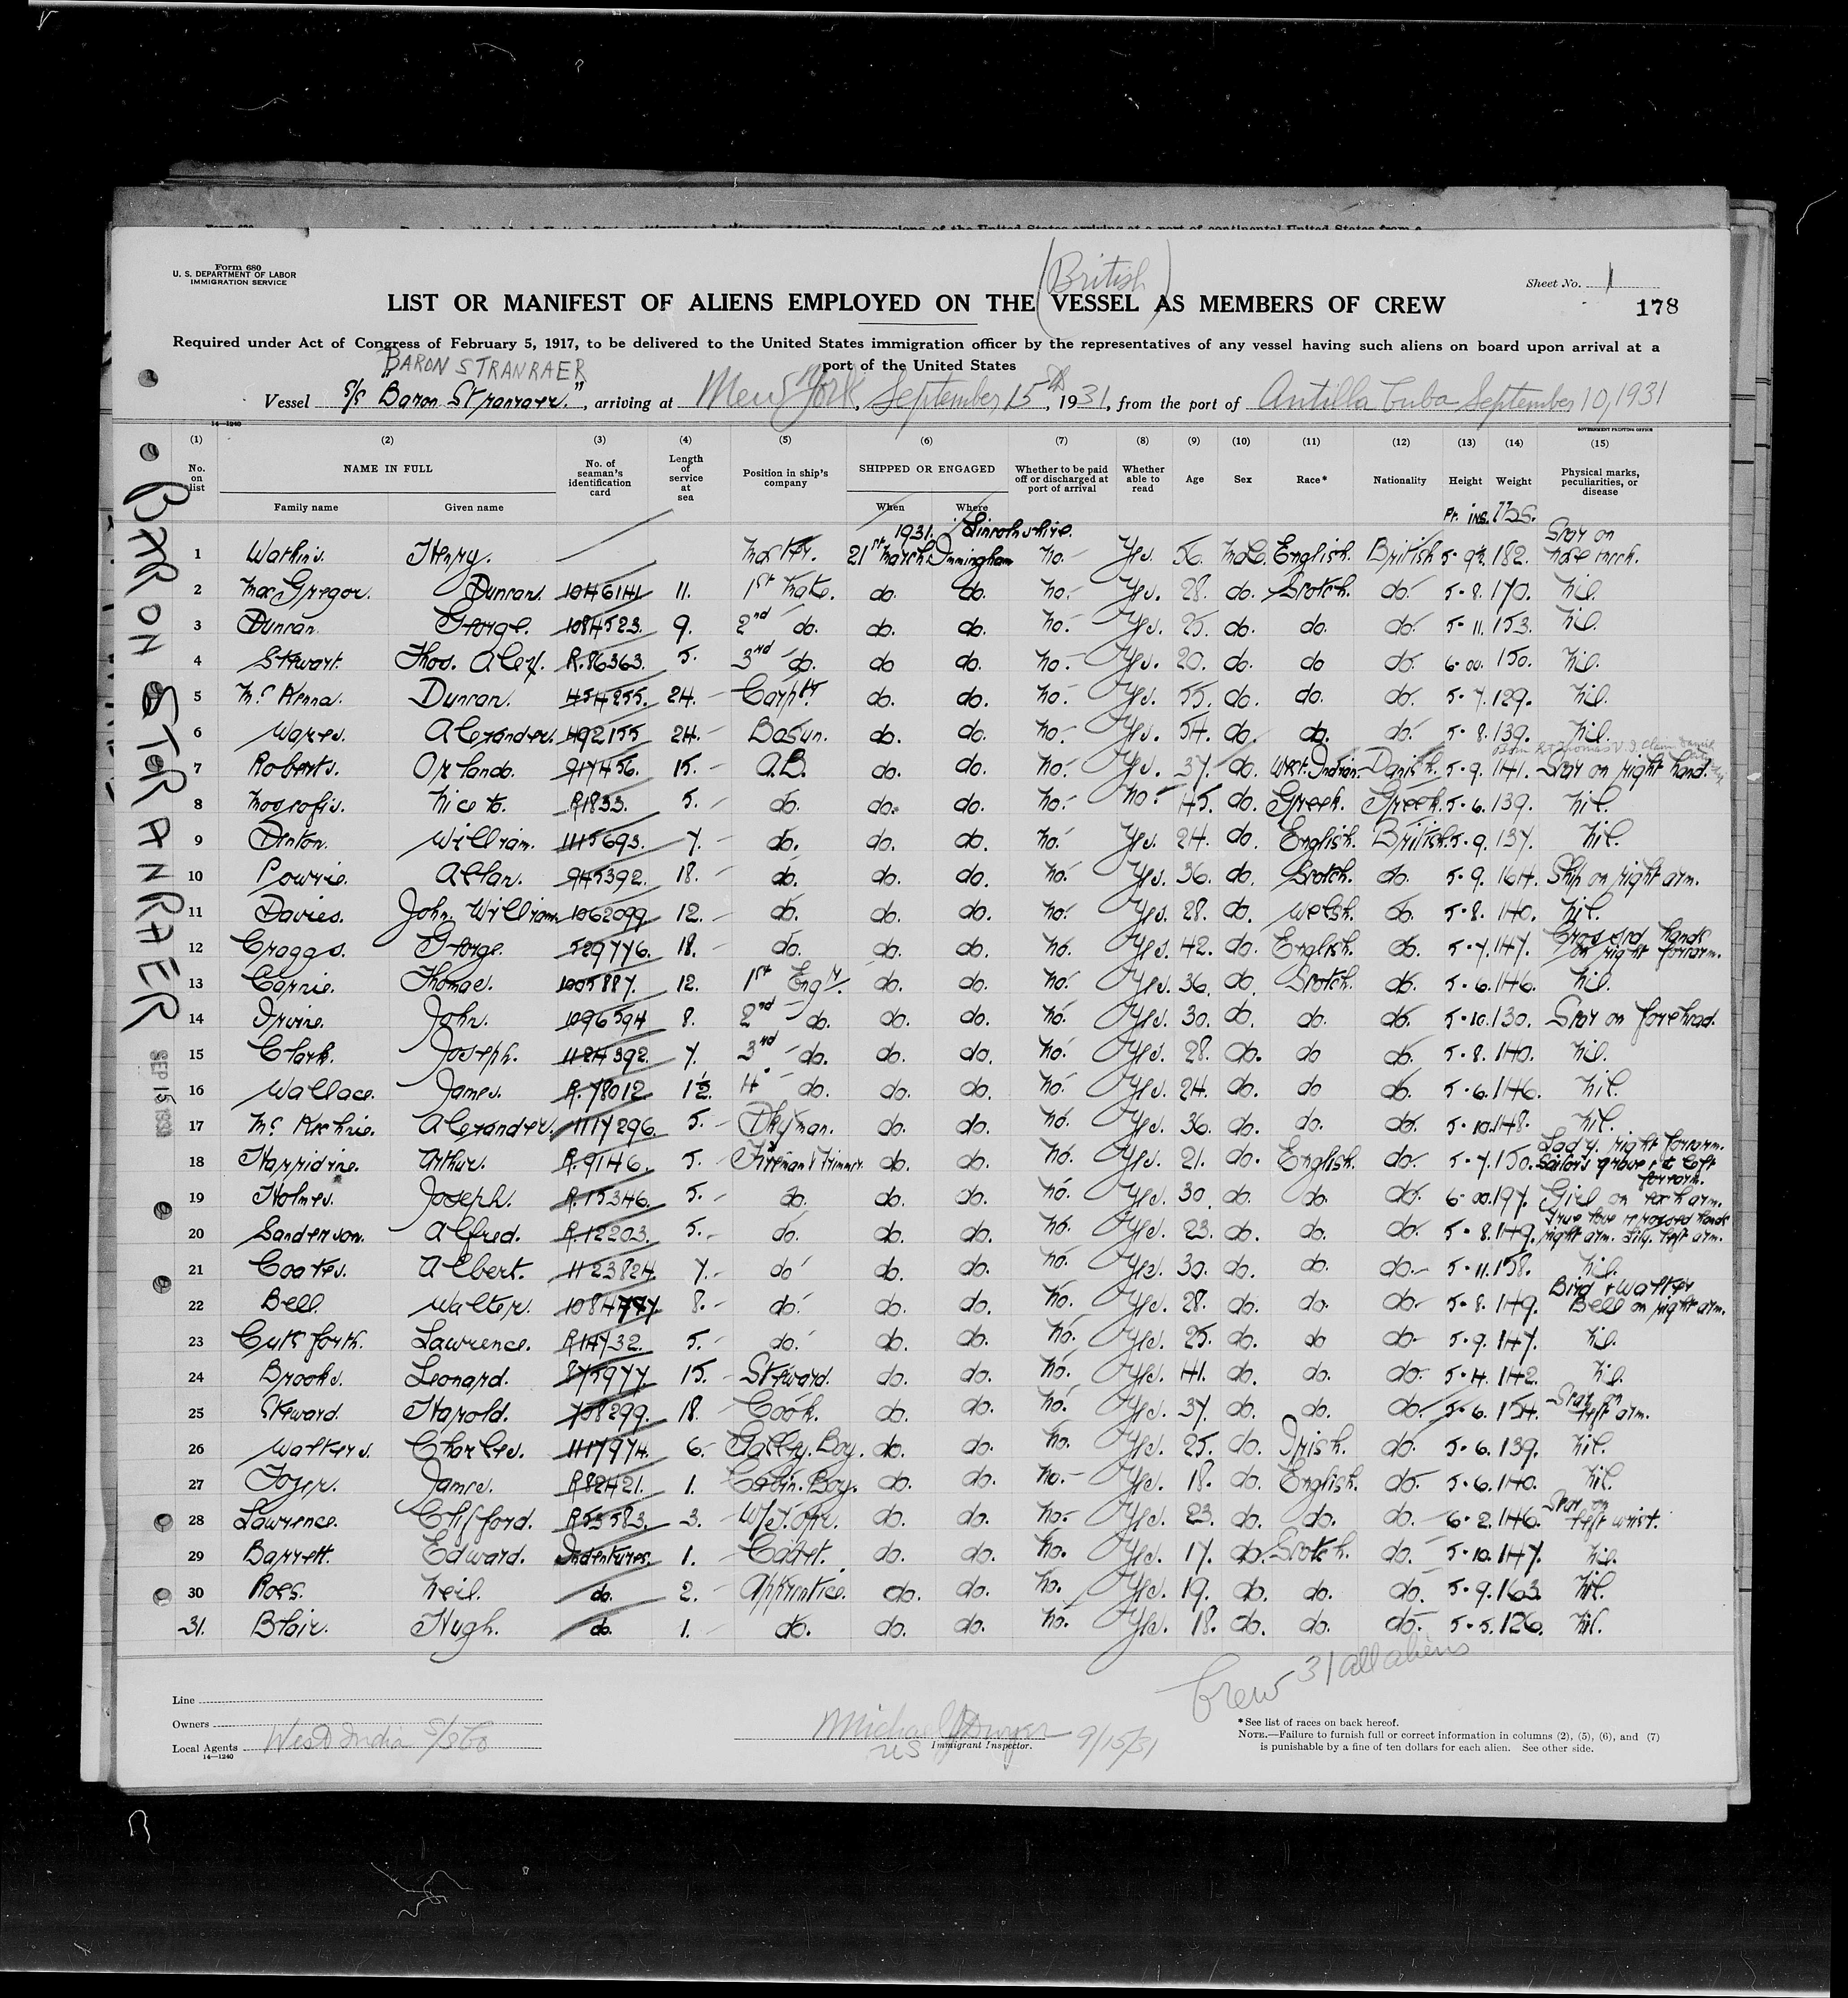 Form 680
U. S. DEPARTMENT OF LABOR
IMMIGRATION SERVICE
(British)
Sheet No. 1
LIST OR MANIFEST OF ALIENS EMPLOYED ON THE VESSEL AS MEMBERS OF CREW
178
Required under Act of Congress of February 5, 1917, to be delivered to the United States immigration officer by the representatives of any vessel having such aliens on board upon arrival at a
port of the United States
BARON STRANRAER
Vessel S/S "Baron Stranraer.", arriving at New York, September 15th, 1931, from the port of Antilla Cuba September 10, 1931
14—1240
GOVERNMENT PRINTING OFFICE
(1) (2) (3) (4) (5) (6) (7) (8) (9) (10) (11) (12) (13) (14) (15)
No. on list NAME IN FULL No. of seaman's identification card Length of service at sea Position in ship's company SHIPPED OR ENGAGED Whether to be paid off or discharged at port of arrival Whether able to read Age Sex Race* Nationality Height Weight Physical marks, peculiarities, or disease
Family name Given name When Where
Ft. ins. lbs.
1931. Lincolnshire. Scar on
1 Watkins. Henry. Master. 21st March. Immingham no. Yes. 56. Male. English. British 5-9½. 182. nose inch.
2 MacGregor. Duncan. 1046141 11. 1st Mate. do. do. no. Yes. 28. do. Scotch. do. 5-8. 170. nil.
3 Duncan. George. 1084523. 9. 2nd do. do. do. no. Yes. 25. do. do. do. 5-11. 153. nil.
4 Stewart. Thos. Alex. R.86363. 5. 3rd do. do do. no. Yes. 20. do. do do. 6-00. 150. nil.
5 McKenna. Duncan. 454255. 24. Carptr. do. do. no. Yes. 55. do. do. do. 5-7. 129. nil.
6 Wares. Alexander. 492155 24. Bosun. do. do. no. Yes. 54. do. do. do. 5-8. 139. nil.
Born St Thomas V.I. Claim Danish
7 Roberts. Orlando. 917456. 15. A.B. do. do. no. Yes. 37. do. West.Indian. Danish. 5-9. 141. Scar on right hand.
8 Moscofis. Niceto. R1833. 5. do. do. do. no. no. 45. do. Greek. Greek. 5-6. 139. nil.
9 Denton. William. 1115693. 7. do. do. do. no. Yes. 24. do. English. British. 5-9. 137. nil.
10 Powrie. Allan. 945392. 18. do. do. do. no. Yes. 36. do. Scotch. do. 5-9. 164. Ship on right arm.
11 Davies. John. William. 1062099. 12. do. do. do. no. Yes. 28. do. Welsh. do. 5-8. 140. nil.
12 Craggs. George. 529776. 18. do. do. do. no. Yes. 42. do. English. do. 5-7. 147. Crossed hands on right forearm.
13 Cairnie. Thomas. 1005887. 12. 1st Engr. do. do. no. Yes. 36. do. Scotch. do. 5-6. 146. nil.
14 Irvine. John. 1096594 8. 2nd do. do. do. no. Yes. 30. do. do. do. 5-10. 130. Scar on forehead.
15 Clark. Joseph. 1124392. 7. 3rd do. do. do. no. Yes. 28. do. do do. 5-8. 140. nil.
16 Wallace. James. R.78012. 1½. 4" do. do. do. no. Yes. 24. do. do do. 5-6. 146. nil.
17 McKechnie. Alexander. 1117296. 5. Dkyman. do. do. no. Yes. 36. do. do. do. 5-10. 148. nil.
18 Harridine. Arthur. R.9146. 5. Fireman & Trimmer. do. do. no. Yes. 21. do. English. do. 5-7. 150. Lady. right forearm. Sailors grave, left forearm.
19 Holmes. Joseph. R.15346. 5. do. do. do. no. Yes. 30. do. do. do. 6-00. 197. Girl on each arm.
20 Sanderson. Alfred. R.12203. 5. do. do. do. no. Yes. 23. do. do. do. 5-8. 149. True love & crossed hands right arm. Lily. left arm.
21 Coates. Albert. 1123824. 7. do do. do. no. Yes. 30. do. do. do. 5-11. 158. nil.
22 Bell. Walter. 1084777. 8. do. do. do. no. Yes. 28. do. do. do. 5-8. 149. Bird & Walter Bell on right arm.
23 Cutforth. Lawrence. R14732. 5. do. do. do. no. Yes. 25. do. do do. 5-9. 147. nil.
24 Brooks. Leonard. 875977. 15. Steward. do. do. no. Yes. 41. do. do. do. 5-4. 142. nil.
25 Steward. Harold. 758299. 18. Cook. do. do. no. Yes. 37. do. do. do. 5-6. 154. Scar on left arm.
26 Walters. Charles. 1117974. 6. Galley. Boy. do. do. no. Yes. 25. do. Irish. do. 5-6. 139. nil.
27 Tozer. James. R82421. 1. Cabin. Boy. do. do. no. Yes. 18. do. English. do. 5-6. 140. nil.
28 Lawrence. Clifford. R53583. 3. W/T. Opr. do. do. no. Yes. 23. do. do. do. 6-2. 146. Scar on left wrist.
29 Barrett. Edward. Indentures. 1. Cadet. do. do. no. Yes. 17. do. Scotch. do. 5-10. 147. nil.
30 Ross. Neil. do. 2. Apprentice. do. do. no. Yes. 19. do. do. do. 5-9. 163. nil.
31. Blair. Hugh. do. 1. do. do. do. no. Yes. 18. do. do. do. 5-5. 126. nil.
BARON STRANRAER
SEP 15 1931
Crew 31 all aliens
Line
Owners
Local Agents West India S/S Co
14—1240
Michael Dwyer 9/15/31
US Immigrant Inspector.
*See list of races on back hereof.
NOTE.—Failure to furnish full or correct information in columns (2), (5), (6), and (7)
is punishable by a fine of ten dollars for each alien. See other side.